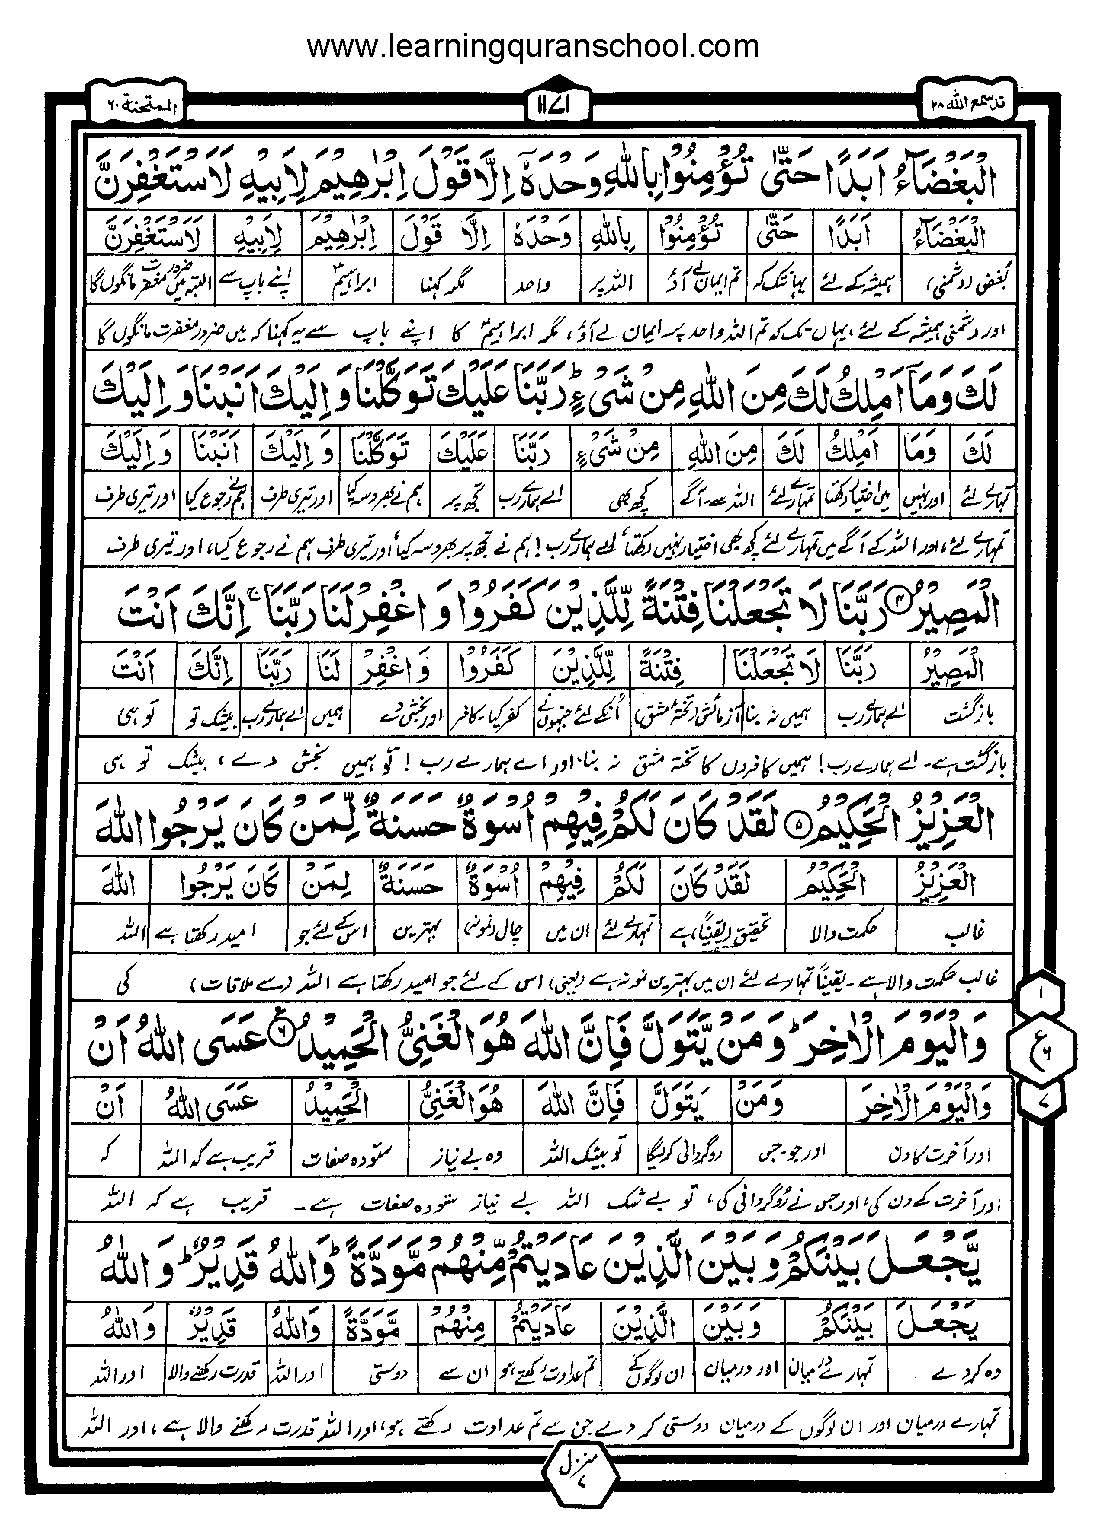 www.learningquranschool.com
قد سمع الله ٢٨
١١٧١
الممتحنة ٦٠
الْبَغْضَآءُ اَبَدًا حَتّٰى تُؤْمِنُوْا بِاللّٰهِ وَحْدَهٗۤ اِلَّا قَوْلَ اِبْرٰهِيْمَ لِاَبِيْهِ لَاَسْتَغْفِرَنَّ
الْبَغْضَآءُ اَبَدًا حَتّٰى تُؤْمِنُوْا بِاللّٰهِ وَحْدَهٗ اِلَّا قَوْلَ اِبْرٰهِيْمَ لِاَبِيْهِ لَاَسْتَغْفِرَنَّ
بُغض (دشمنی) ہمیشہ کے لئے یہانتک کہ تم ایمان لے آؤ اللہ پر واحد مگر کہنا ابراہیمؑ اپنے باپ سے البتہ میں ضرور مغفرت مانگوں گا
اور دشمنی ہمیشہ کے لئے، یہاں تک کہ تم اللہ واحد پر ایمان لے آؤ، مگر ابراہیمؑ کا اپنے باپ سے یہ کہنا کہ میں ضرور مغفرت مانگوں گا
لَكَ وَمَاۤ اَمْلِكُ لَكَ مِنَ اللّٰهِ مِنْ شَيْءٍ ؕ رَبَّنَا عَلَيْكَ تَوَكَّلْنَا وَاِلَيْكَ اَنَبْنَا وَاِلَيْكَ
لَكَ وَمَا اَمْلِكُ لَكَ مِنَ اللّٰهِ مِنْ شَيْءٍ رَبَّنَا عَلَيْكَ تَوَكَّلْنَا وَ اِلَيْكَ اَنَبْنَا وَ اِلَيْكَ
تمہارے لئے اور نہیں میں اختیار رکھتا تمہارے لئے اللہ سے آگے کچھ بھی اے ہمارے رب تجھ پر ہم نے بھروسہ کیا اور تیری طرف ہم نے رجوع کیا اور تیری طرف
تمہارے لئے، اور اللہ کے آگے میں تمہارے لئے کچھ بھی اختیار نہیں رکھتا، اے ہمارے رب! ہم نے تجھ پر بھروسہ کیا، اور تیری طرف ہم نے رجوع کیا، اور تیری طرف
الْمَصِيْرُ ۴ رَبَّنَا لَا تَجْعَلْنَا فِتْنَةً لِّلَّذِيْنَ كَفَرُوْا وَ اغْفِرْ لَنَا رَبَّنَا ۚ اِنَّكَ اَنْتَ
الْمَصِيْرُ رَبَّنَا لَا تَجْعَلْنَا فِتْنَةً لِّلَّذِيْنَ كَفَرُوْا وَ اغْفِرْ لَنَا رَبَّنَا اِنَّكَ اَنْتَ
بازگشت اے ہمارے رب ہمیں نہ بنا آزمائش (تختۂ مشق) اُنکے لئے جنہوں نے کفر کیا۔کافر اور بخش دے ہمیں اے ہمارے رب بیشک تو تو ہی
بازگشت ہے۔ اے ہمارے رب! ہمیں کافروں کا تختۂ مشق نہ بنا، اور اے ہمارے رب! تو ہمیں بخش دے، بیشک تو ہی
الْعَزِيْزُ الْحَكِيْمُ ۵ لَقَدْ كَانَ لَكُمْ فِيْهِمْ اُسْوَةٌ حَسَنَةٌ لِّمَنْ كَانَ يَرْجُوا اللّٰهَ
الْعَزِيْزُ الْحَكِيْمُ لَقَدْ كَانَ لَكُمْ فِيْهِمْ اُسْوَةٌ حَسَنَةٌ لِمَنْ كَانَ يَرْجُوا اللّٰهَ
غالب حکمت والا تحقیق (یقیناً) ہے تمہارے لئے ان میں چال (نمونہ) بہترین اس کے لئے جو امید رکھتا ہے اللہ
غالب حکمت والا ہے۔ یقیناً تمہارے لئے ان میں بہترین نمونہ ہے (یعنی) اس کے لئے جو امید رکھتا ہے اللہ (سے ملاقات) کی
وَالْيَوْمَ الْاٰخِرَ ؕ وَمَنْ يَّتَوَلَّ فَاِنَّ اللّٰهَ هُوَ الْغَنِيُّ الْحَمِيْدُ ۶ عَسَى اللّٰهُ اَنْ
وَالْيَوْمَ الْاٰخِرَ وَمَنْ يَتَوَلَّ فَاِنَّ اللّٰهَ هُوَ الْغَنِيُّ الْحَمِيْدُ عَسَى اللّٰهُ اَنْ
اور آخرت کا دن اور جو۔جس روگردانی کریگا تو بیشک اللہ وہ بے نیاز ستودہ صفات قریب ہے کہ اللہ کہ
اور آخرت کے دن کی، اور جس نے رُوگردانی کی، تو بے شک اللہ بے نیاز ستودہ صفات ہے۔ قریب ہے کہ اللہ
يَّجْعَلَ بَيْنَكُمْ وَبَيْنَ الَّذِيْنَ عَادَيْتُمْ مِّنْهُمْ مَّوَدَّةً ؕ وَاللّٰهُ قَدِيْرٌ ؕ وَاللّٰهُ
يَجْعَلَ بَيْنَكُمْ وَبَيْنَ الَّذِيْنَ عَادَيْتُمْ مِنْهُمْ مَّوَدَّةً وَاللّٰهُ قَدِيْرٌ وَاللّٰهُ
وہ کردے تمہارے درمیان اور درمیان ان لوگوں کے تم عداوت رکھتے ہو ان سے دوستی اور اللہ قدرت رکھنے والا اور اللہ
تمہارے درمیان اور ان لوگوں کے درمیان دوستی کر دے جن سے تم عداوت رکھتے ہو، اور اللہ قدرت رکھنے والا ہے، اور اللہ
١
ع ٦
٧
منزل ٧